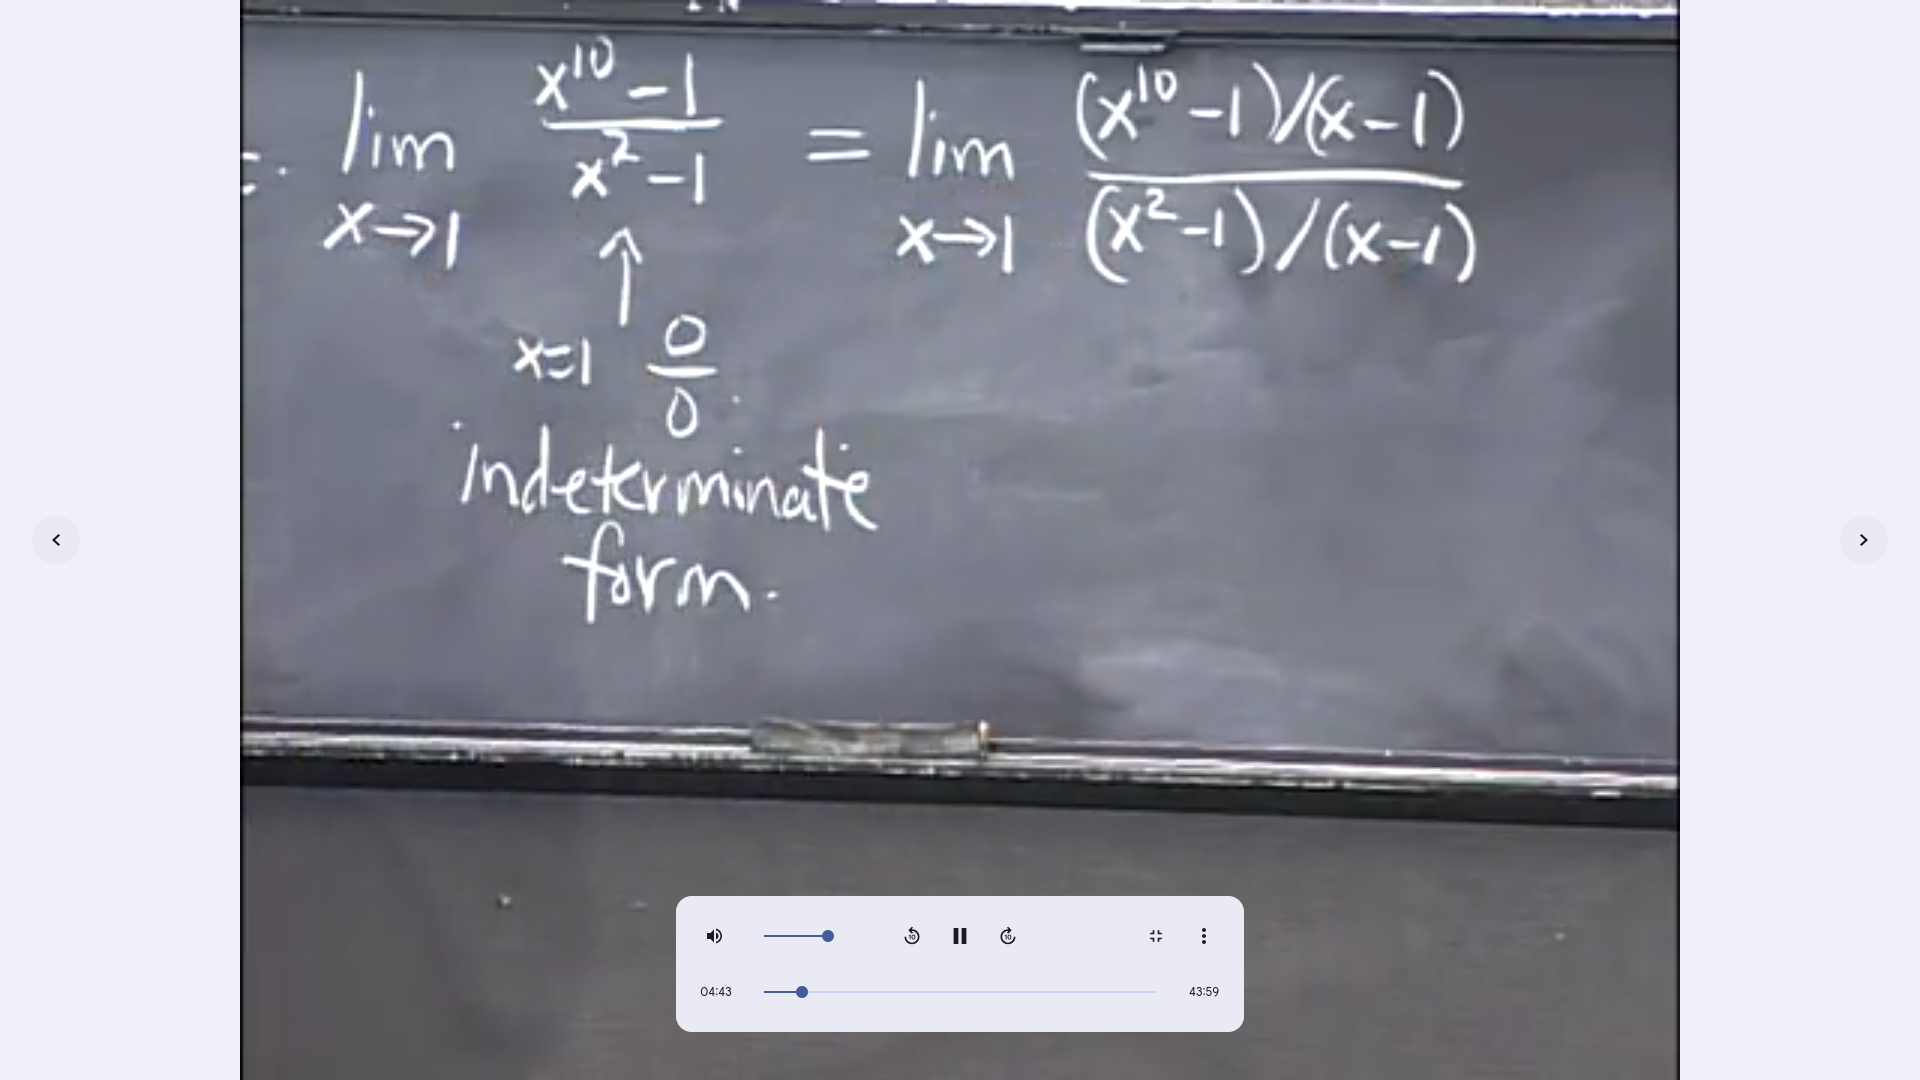 lim x→1 (x¹⁰ − 1)/(x² − 1) = lim x→1 ((x¹⁰ − 1)/(x − 1))/((x² − 1)/(x − 1))
↑
x=1 0/0
indeterminate
form.
10 10
04:43 43:59